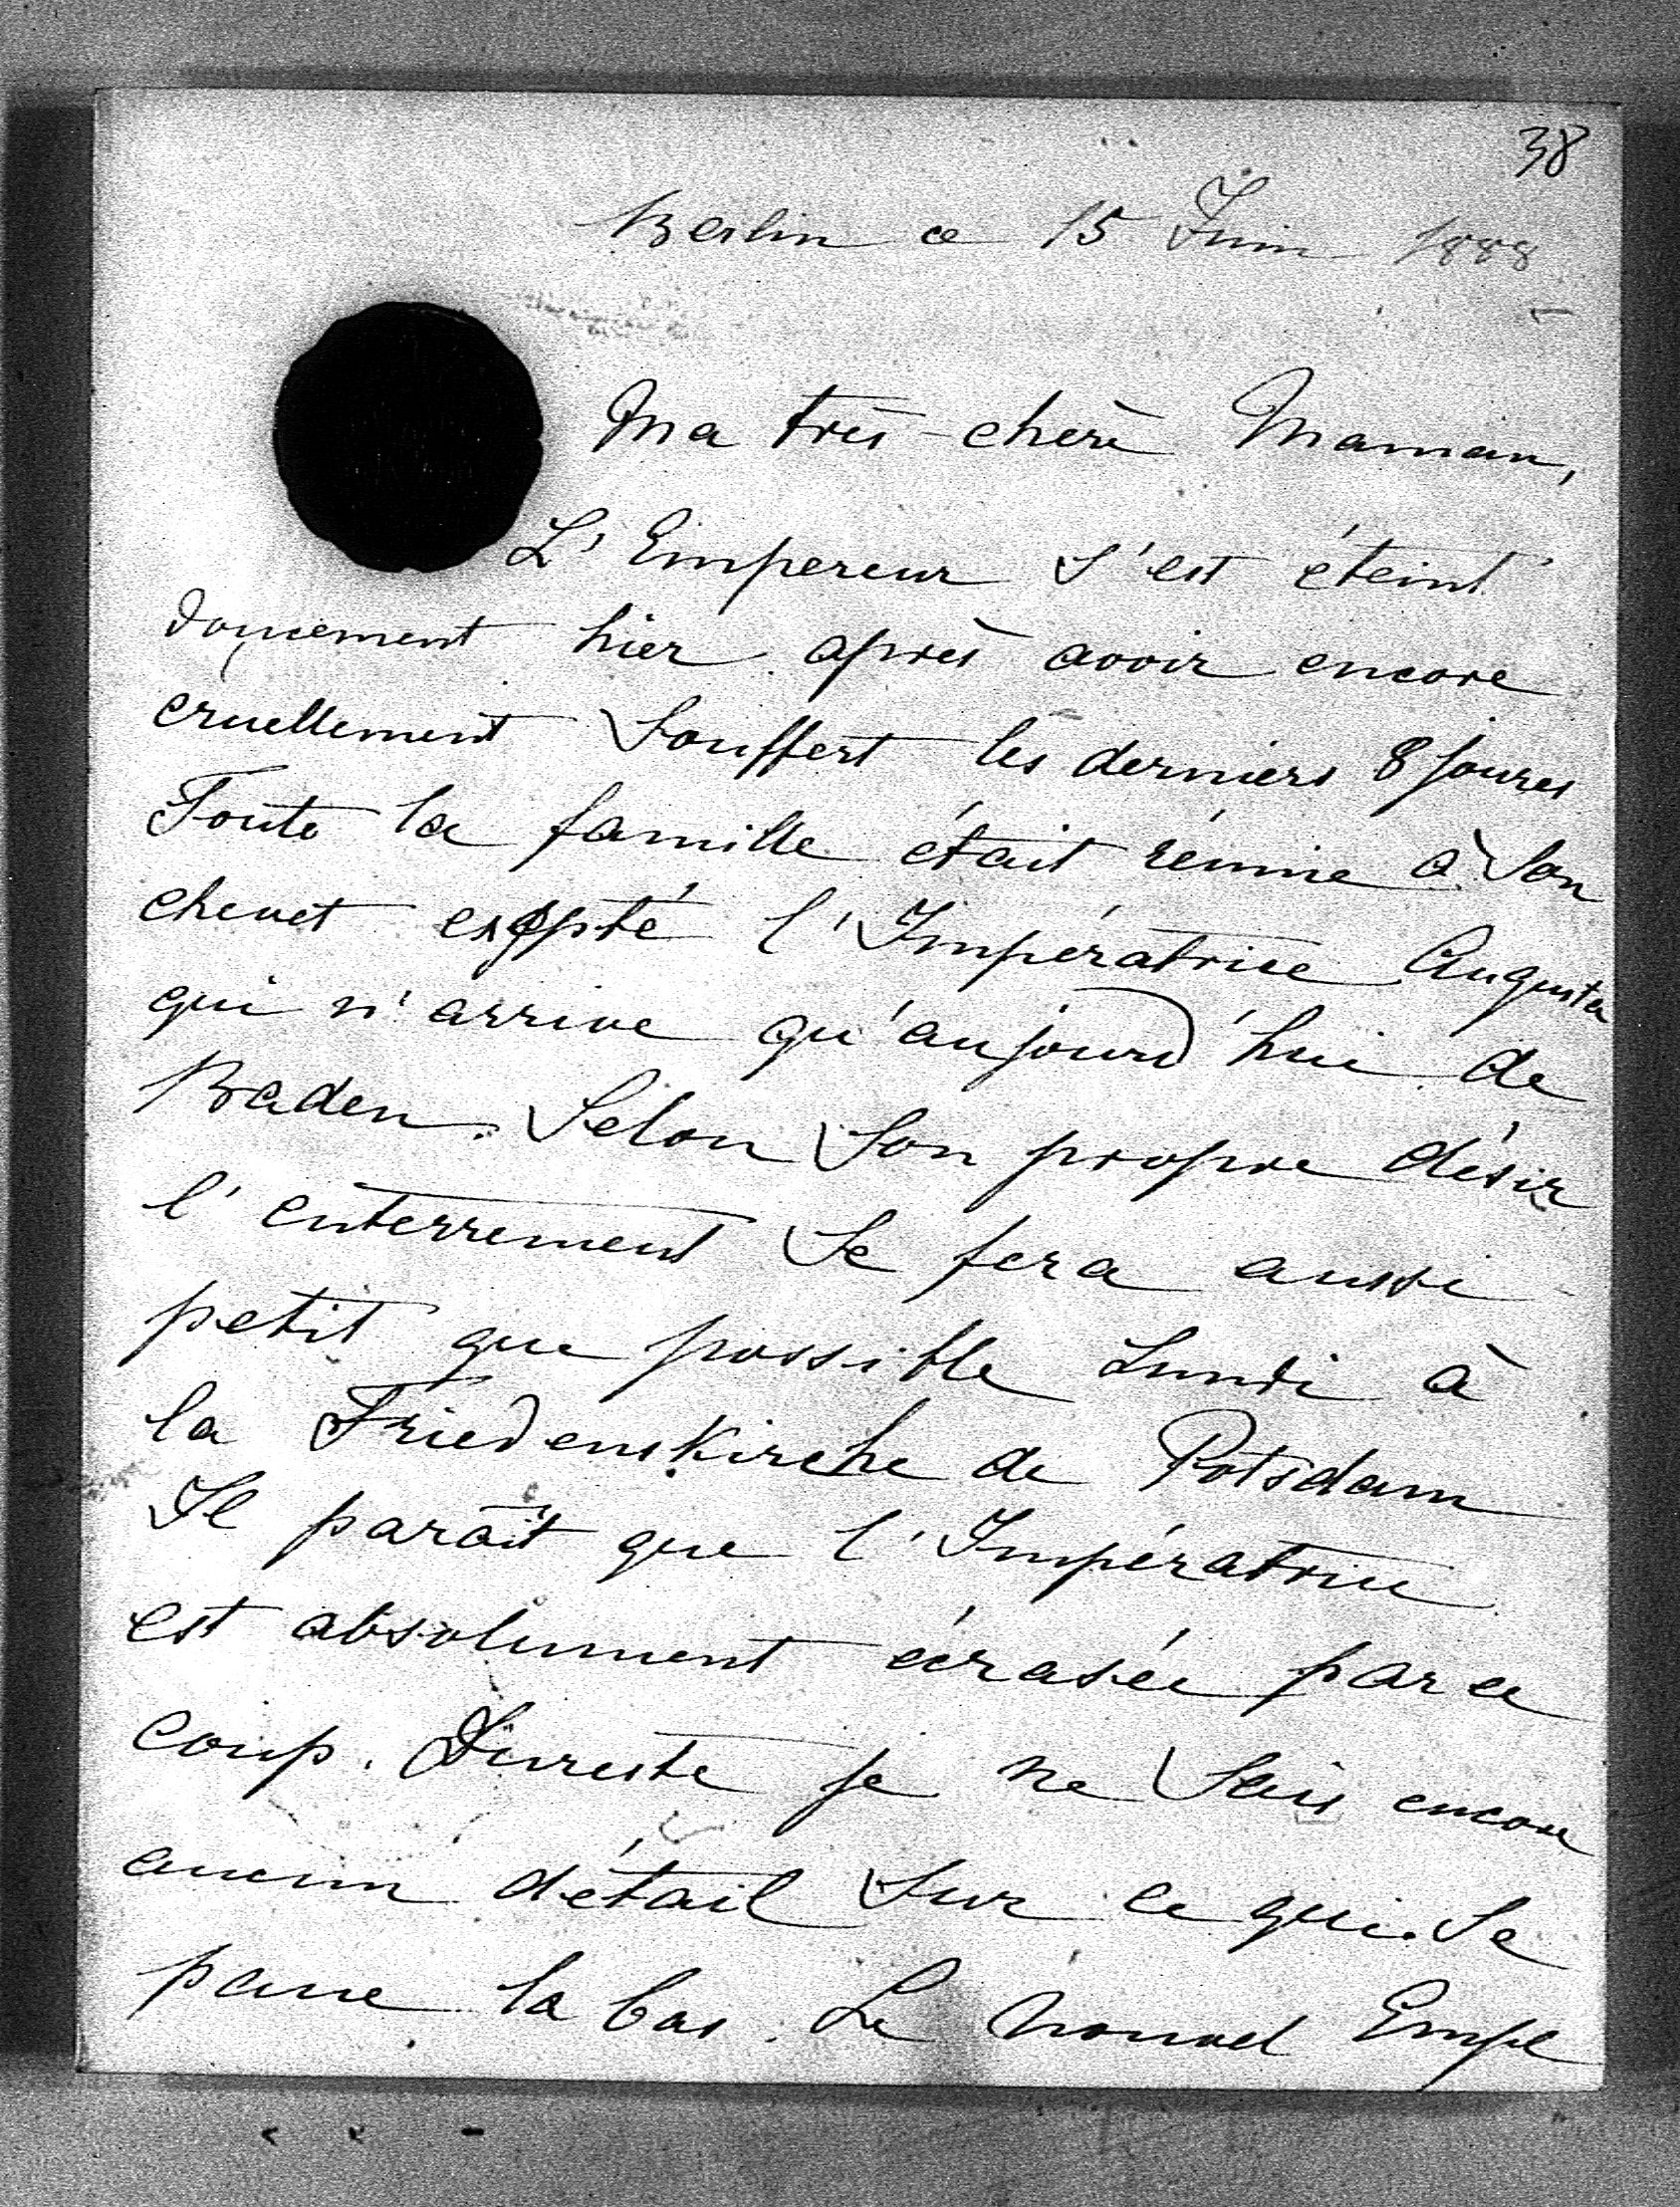 38
Berlin ce 15 Juin 1888
Ma très-chère Maman,
L'Empereur s'est éteint
doucement hier après avoir encore
cruellement souffert les derniers 8 joures
Toute la famille était réunie à son
chevet excepté l'Impératrice Augusta
qui n'arrive qu'aujourd'hui de
Baden. Selon son propre désir
l'enterrement se fera aussi
petit que possible Lundi à
la Friedenskirche de Potsdam
Il paraît que l'Impératrice
est absolument écrasée par ce
coup. Dureste je ne sais encore
aucun détail sur ce qui se
passe la bas. Le nouvel Emp